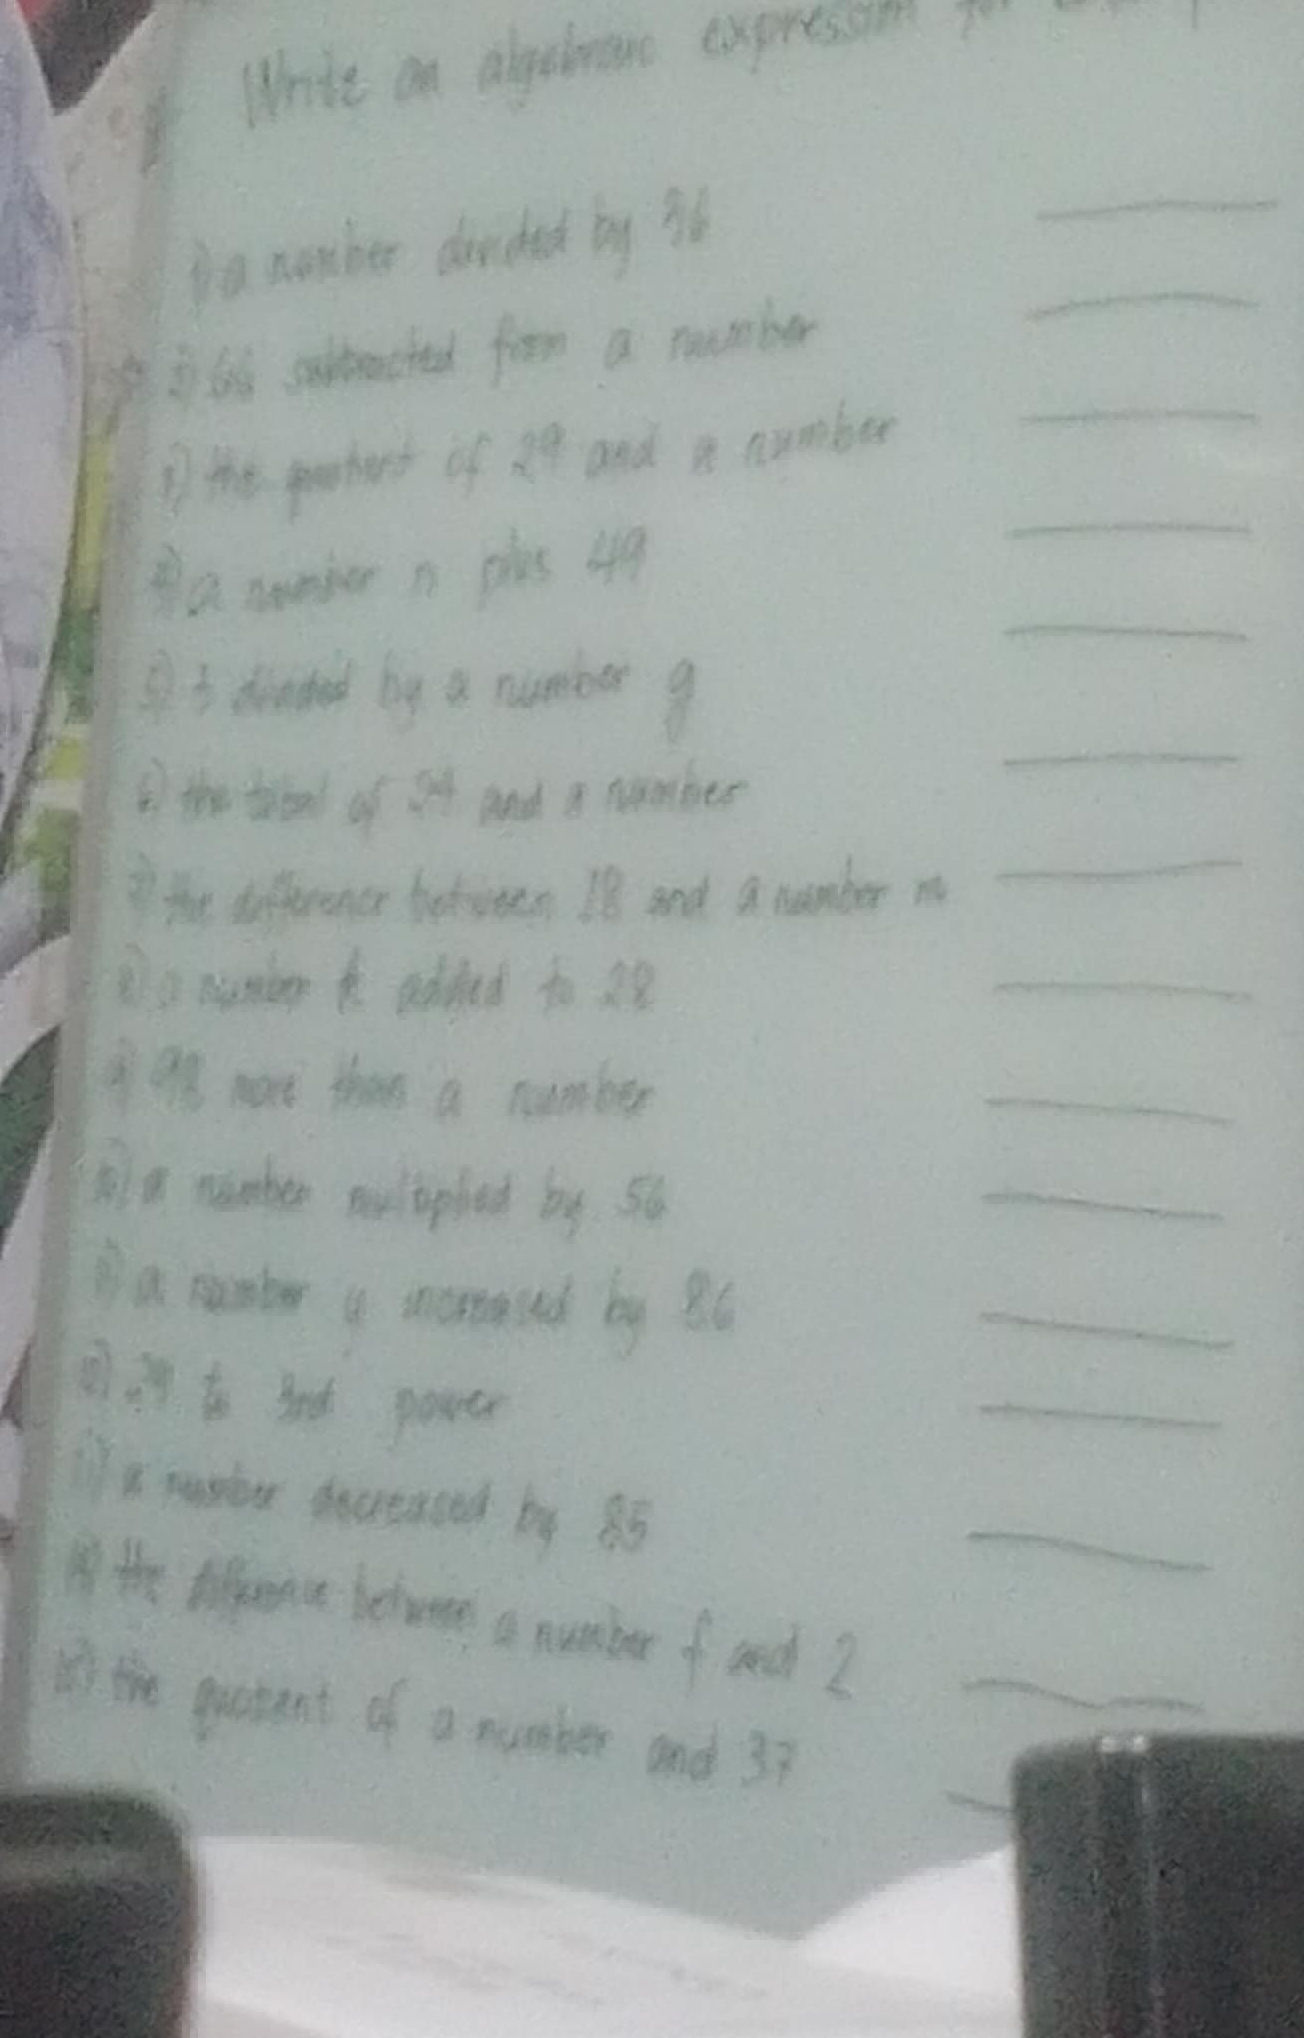 Write an algebraic expression for
1) a number divided by 36
2) 66 subtracted from a number
3) the quotient of 29 and a number
4) a number n plus 49
5) t divided by a number g
6) the total of 34 and a number
7) the difference between 18 and a number m
8) a number k added to 28
9) 98 more than a number
10) a number multiplied by 56
11) a number y increased by 86
12) to 3rd power
13) a number decreased by 85
14) the difference between a number f and 2
15) the quotient of a number and 37